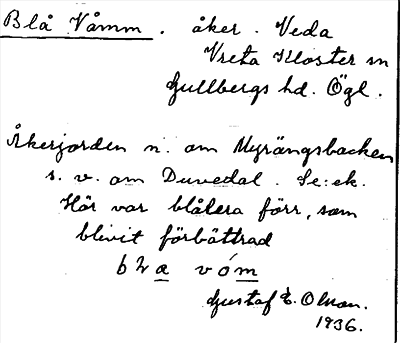 Blå Våmm. åker. Veda
Vreta Kloster sn
Gullbergs hd. Ögl.
Åkerjorden n. om Myrängsbacken
s. v. om Duvedal. Se: ek.
Här var blålera förr, som
blivit förbättrad
bla vóm
Gustaf E. Olson.
1936.